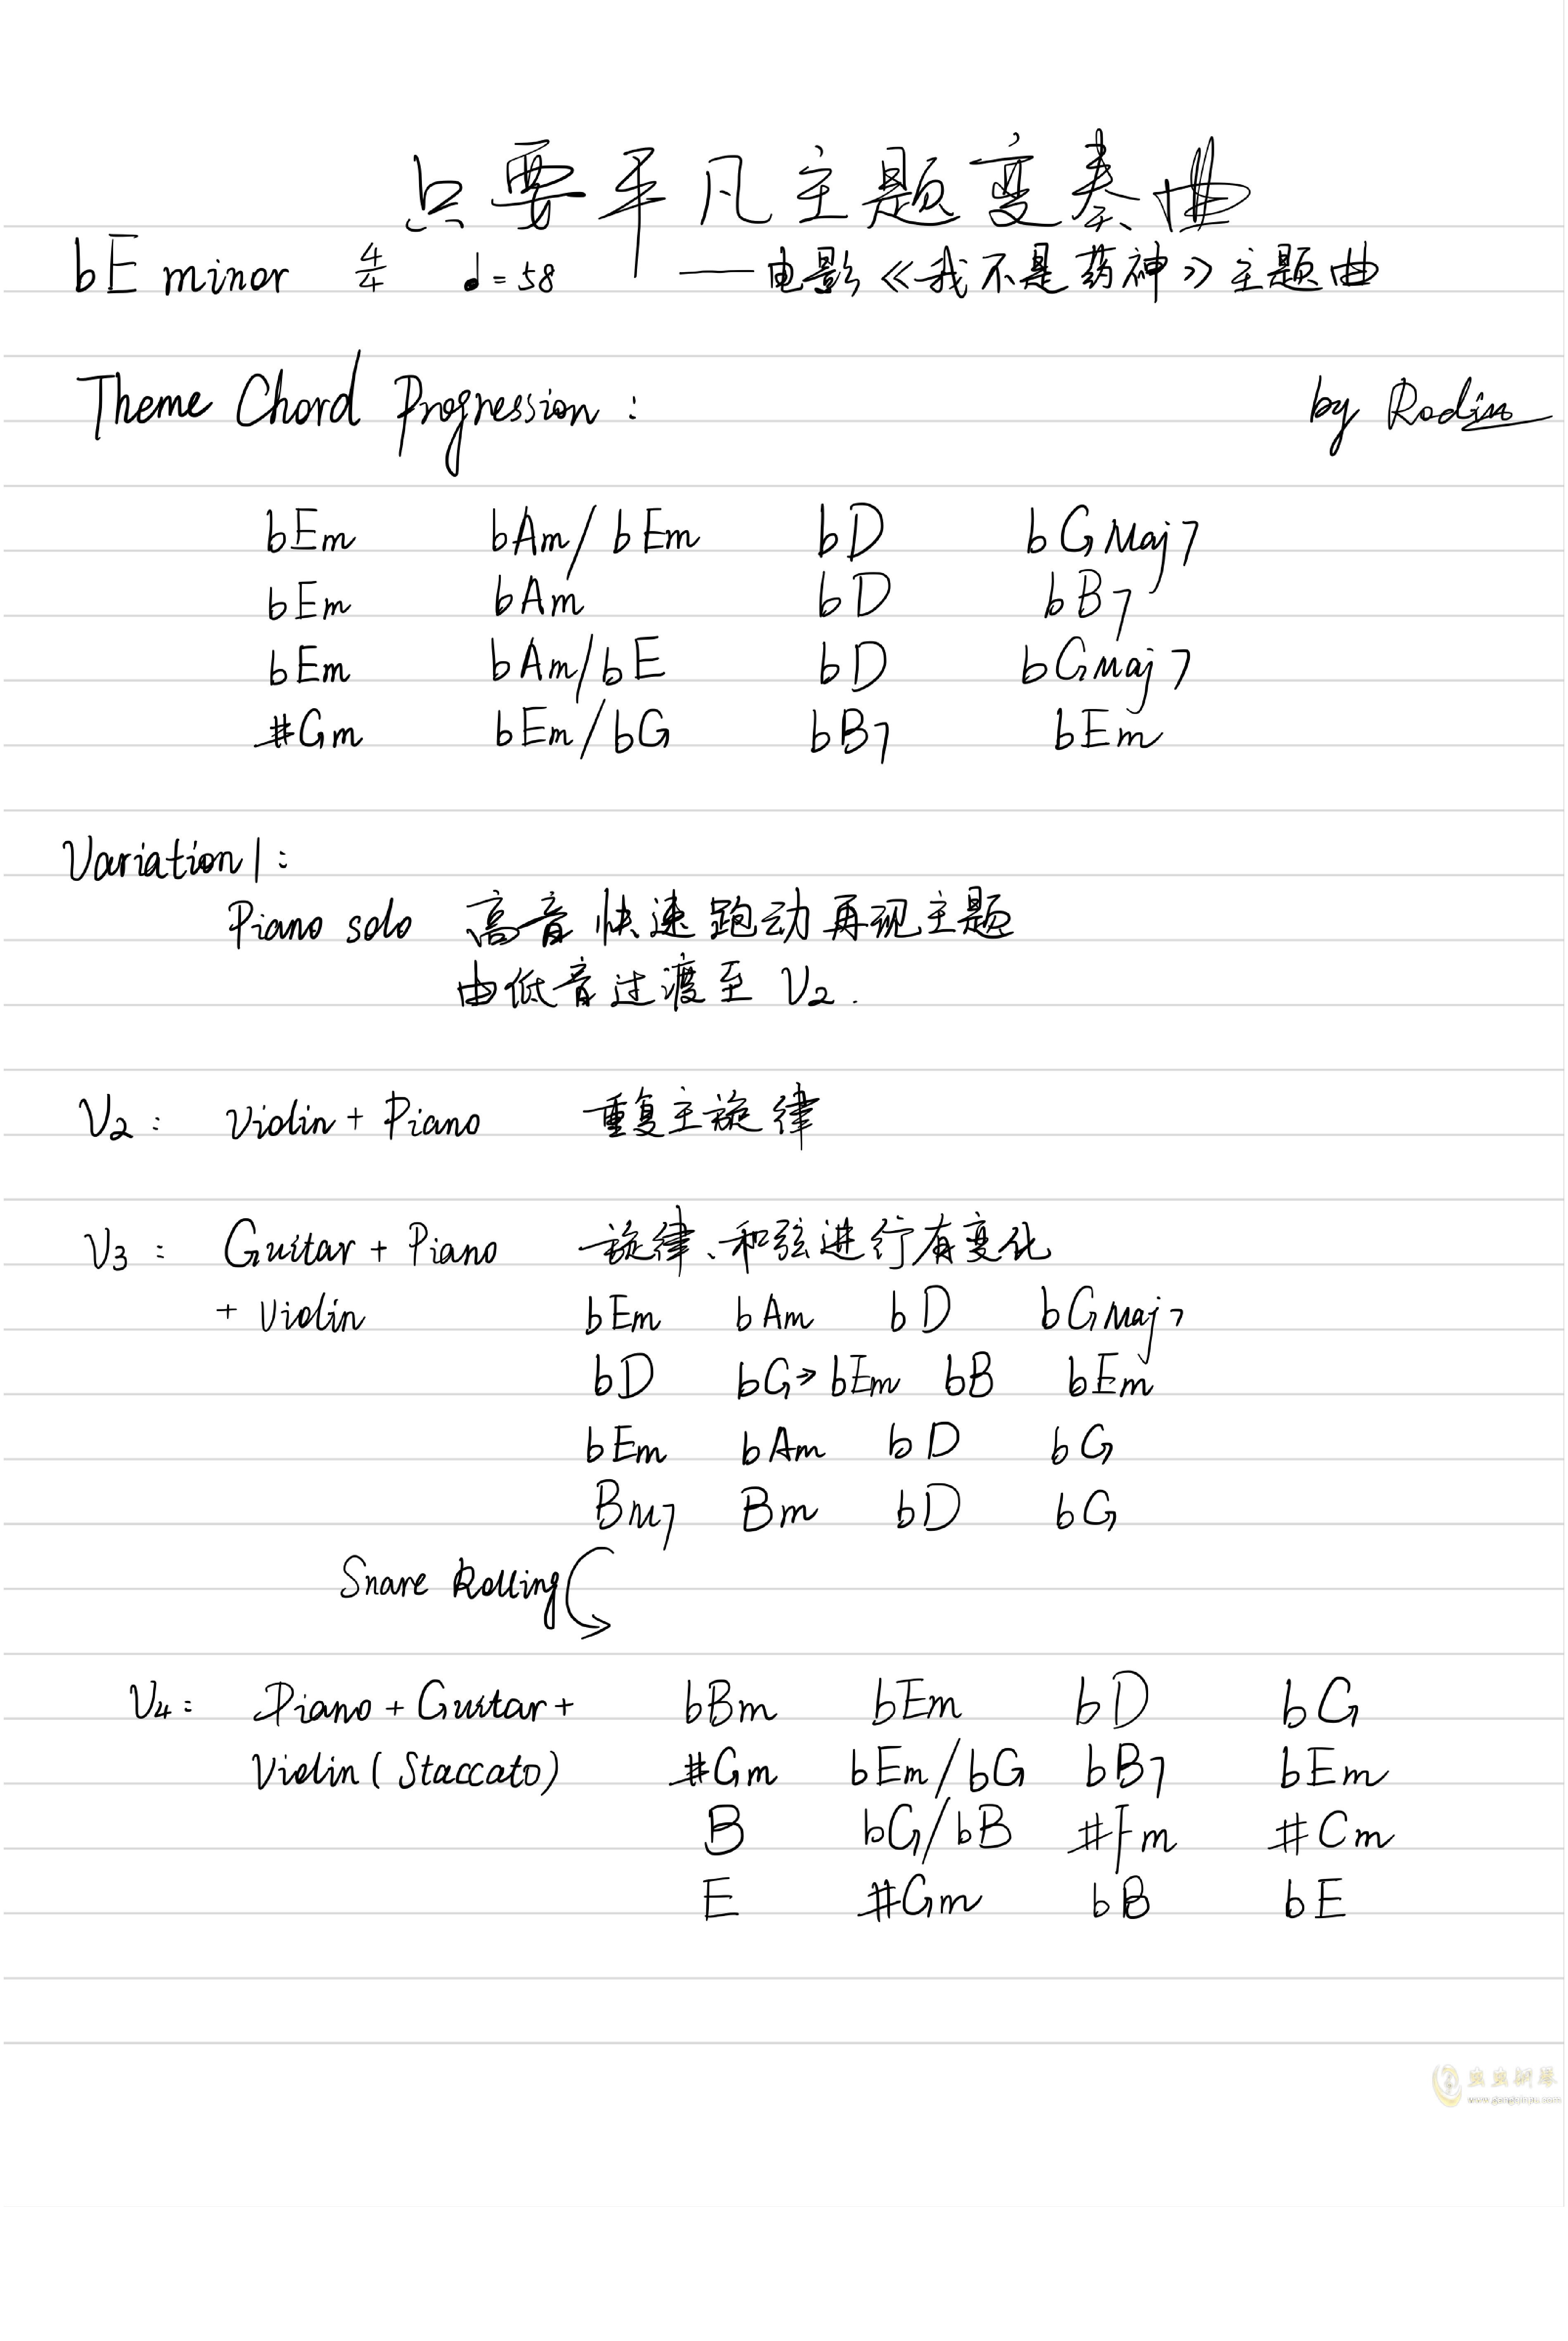 只要平凡主题变奏曲
bE minor 4/4 ♩=58 ——电影《我不是药神》主题曲
Theme Chord Progression: by Rodin
bEm bAm/bEm bD bGMaj7
bEm bAm bD bB7
bEm bAm/bE bD bGMaj7
#Gm bEm/bG bB7 bEm
Variation 1:
Piano solo 高音快速跑动再现主题
由低音过渡至 V2.
V2: Violin + Piano 重复主旋律
V3: Guitar + Piano 旋律、和弦进行有变化
+ Violin bEm bAm bD bGMaj7
bD bG→bEm bB bEm
bEm bAm bD bG
Bm7 Bm bD bG
Snare Rolling
V4: Piano + Guitar + bBm bEm bD bG
Violin (Staccato) #Gm bEm/bG bB7 bEm
B bG/bB #Fm #Cm
E #Gm bB bE
虫虫钢琴
www.gangqinpu.com